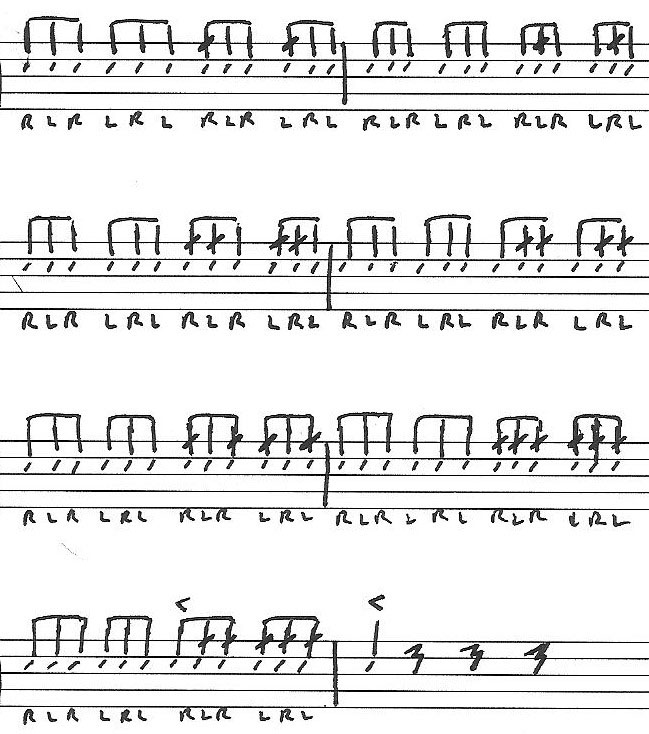 R L R L R L R L R L R L R L R L R L R L R L R L
R L R L R L R L R L R L R L R L R L R L R L R L
R L R L R L R L R L R L R L R L R L R L R L R L
< <
R L R L R L R L R L R L